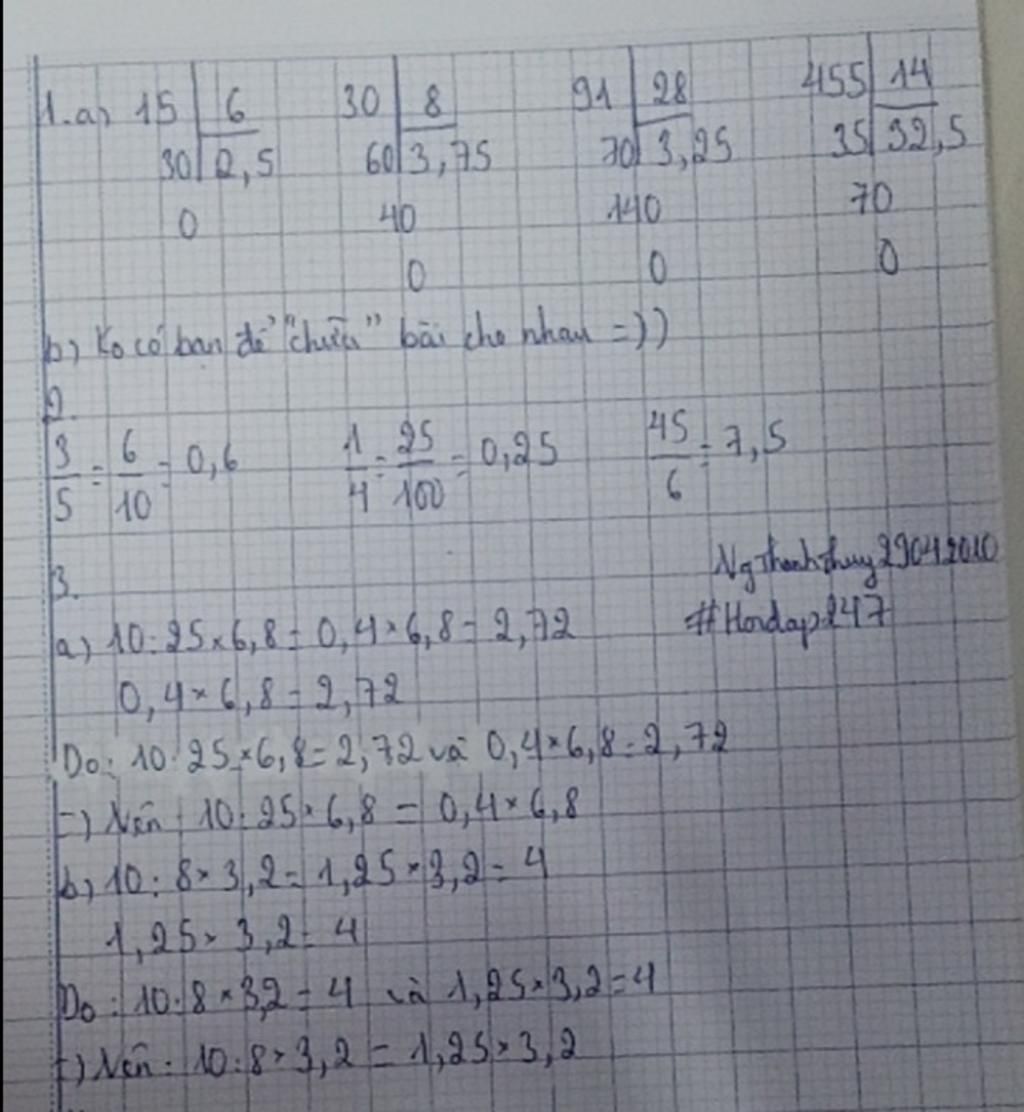 1.a) 15 | 6 30 | 8 91 | 28 455 | 14
30 | 2,5 60 | 3,75 70 | 3,25 35 | 32,5
0 40 140 70
0 0 0
b) Ko có bạn để "chữa" bài cho nhau =))
2.
3/5 = 6/10 = 0,6 1/4 = 25/100 = 0,25 45/6 = 7,5
Ng Thanhthuy29042010
3.
#Hoidap247
a) 10:25×6,8 = 0,4×6,8 = 2,72
0,4×6,8 = 2,72
Do: 10:25×6,8 = 2,72 và 0,4×6,8 = 2,72
=) Nên: 10:25×6,8 = 0,4×6,8
b) 10:8×3,2 = 1,25×3,2 = 4
1,25×3,2 = 4
Do: 10:8×3,2 = 4 và 1,25×3,2 = 4
=) Nên: 10:8×3,2 = 1,25×3,2